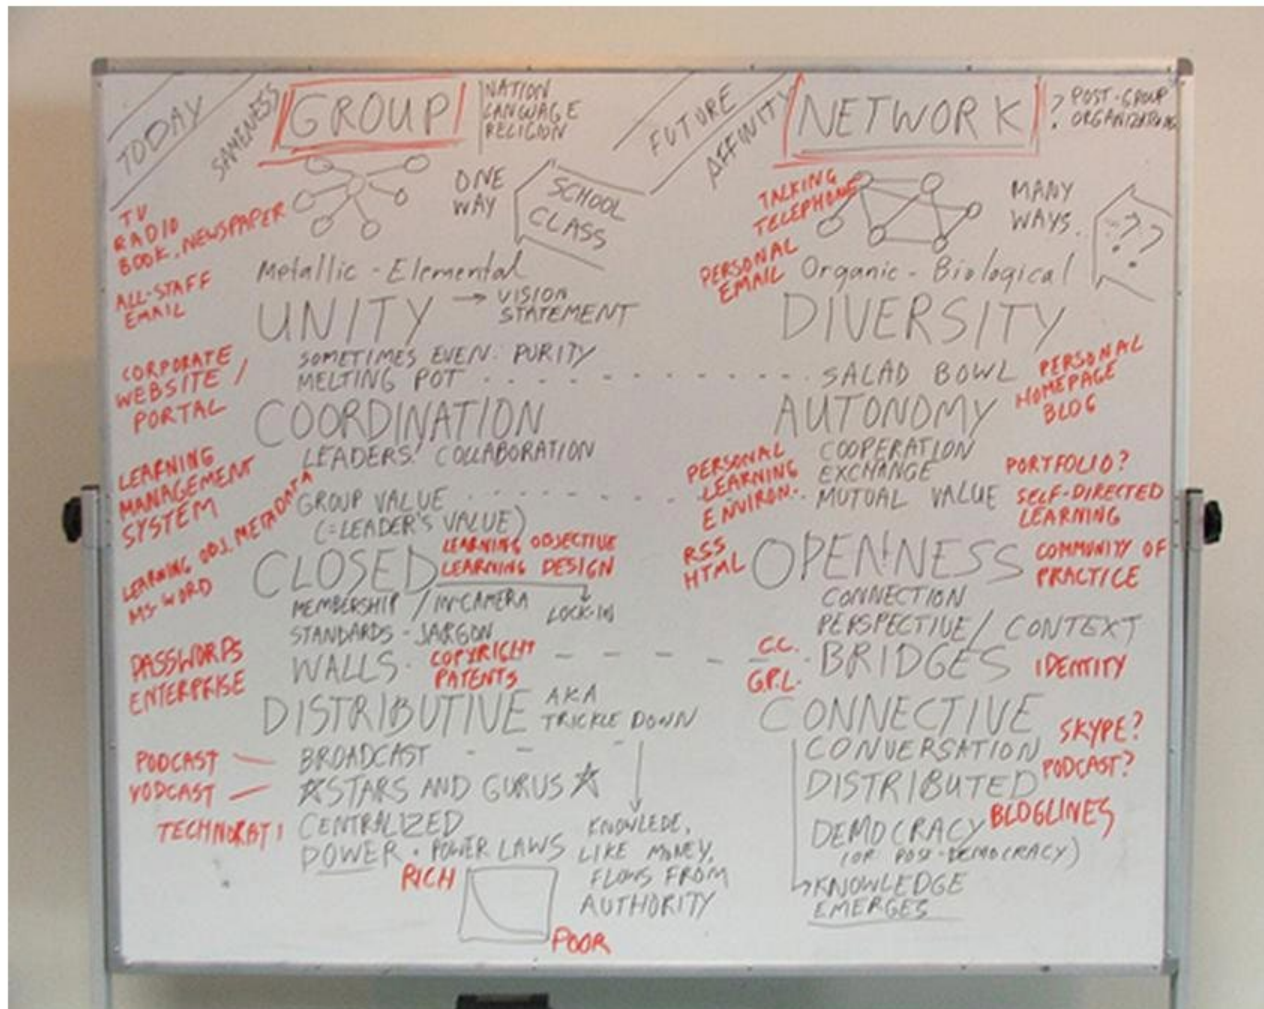 TODAY
SAMENESS
GROUP
NATION
LANGUAGE
RELIGION
ONE
WAY
SCHOOL
CLASS
TV
RADIO
BOOK, NEWSPAPER
ALL-STAFF
EMAIL
Metallic - Elemental
UNITY → VISION
STATEMENT
SOMETIMES EVEN: PURITY
MELTING POT
CORPORATE
WEBSITE /
PORTAL
COORDINATION
LEADERS! COLLABORATION
LEARNING
MANAGEMENT
SYSTEM
GROUP VALUE
(=LEADER'S VALUE)
LEARNING OBJ. METADATA
MS-WORD
CLOSED
LEARNING OBJECTIVE
LEARNING DESIGN
MEMBERSHIP / IN-CAMERA
LOCK-IN
STANDARDS - JARGON
WALLS
COPYRIGHT
PATENTS
PASSWORDS
ENTERPRISE
DISTRIBUTIVE
AKA
TRICKLE DOWN
PODCAST
VODCAST
BROADCAST
☆STARS AND GURUS☆
TECHNORATI
CENTRALIZED
POWER · POWER LAWS
RICH
POOR
KNOWLEDE,
LIKE MONEY,
FLOWS FROM
AUTHORITY
FUTURE
AFFINITY
NETWORK
? POST-GROUP
ORGANIZATIONS
TALKING
TELEPHONE
MANY
WAYS.
???
PERSONAL
EMAIL
Organic - Biological
DIVERSITY
SALAD BOWL
PERSONAL
HOMEPAGE
BLOG
AUTONOMY
COOPERATION
EXCHANGE
MUTUAL VALUE
PERSONAL
LEARNING
ENVIRON.
PORTFOLIO?
SELF-DIRECTED
LEARNING
RSS
HTML
OPENNESS
COMMUNITY OF
PRACTICE
CONNECTION
PERSPECTIVE / CONTEXT
C.C.
G.P.L.
BRIDGES
IDENTITY
CONNECTIVE
CONVERSATION
SKYPE?
DISTRIBUTED
PODCAST?
DEMOCRACY
BLOGLINES
(OR POST-DEMOCRACY)
→KNOWLEDGE
EMERGES